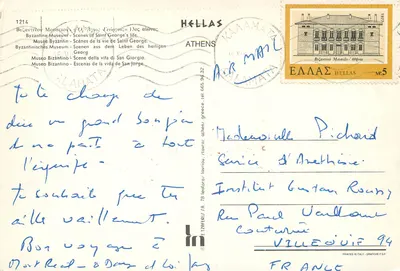 1214
HELLAS
ATHENS
Byzantine Museum - Scenes of Saint George's life
Musée Byzantin - Scènes de la vie de Saint Georges
Byzantinisches Museum - Szenen aus dem Leben des heiligen Georg
Museo Bizantino - Scene della vita di San Giorgio
Museo Bizantino - Escenas de la vida de San Jorge
AIR MAIL
Βυζαντινό Μουσείο - Αθήναι
ΕΛΛΑΣ HELLAS ΔΡ.5
Je te charge de
dire un grand bonjour
de ma part à tout
l'équipe.
Je souhaite que tu
aille vaillamment.
Bon voyage à
Montréal
Mademoiselle Pichard
Service d'Anesthésie
Institut Gustave Roussy
Rue Paul Vaillant
Couturier
VILLEJUIF 94
FRANCE